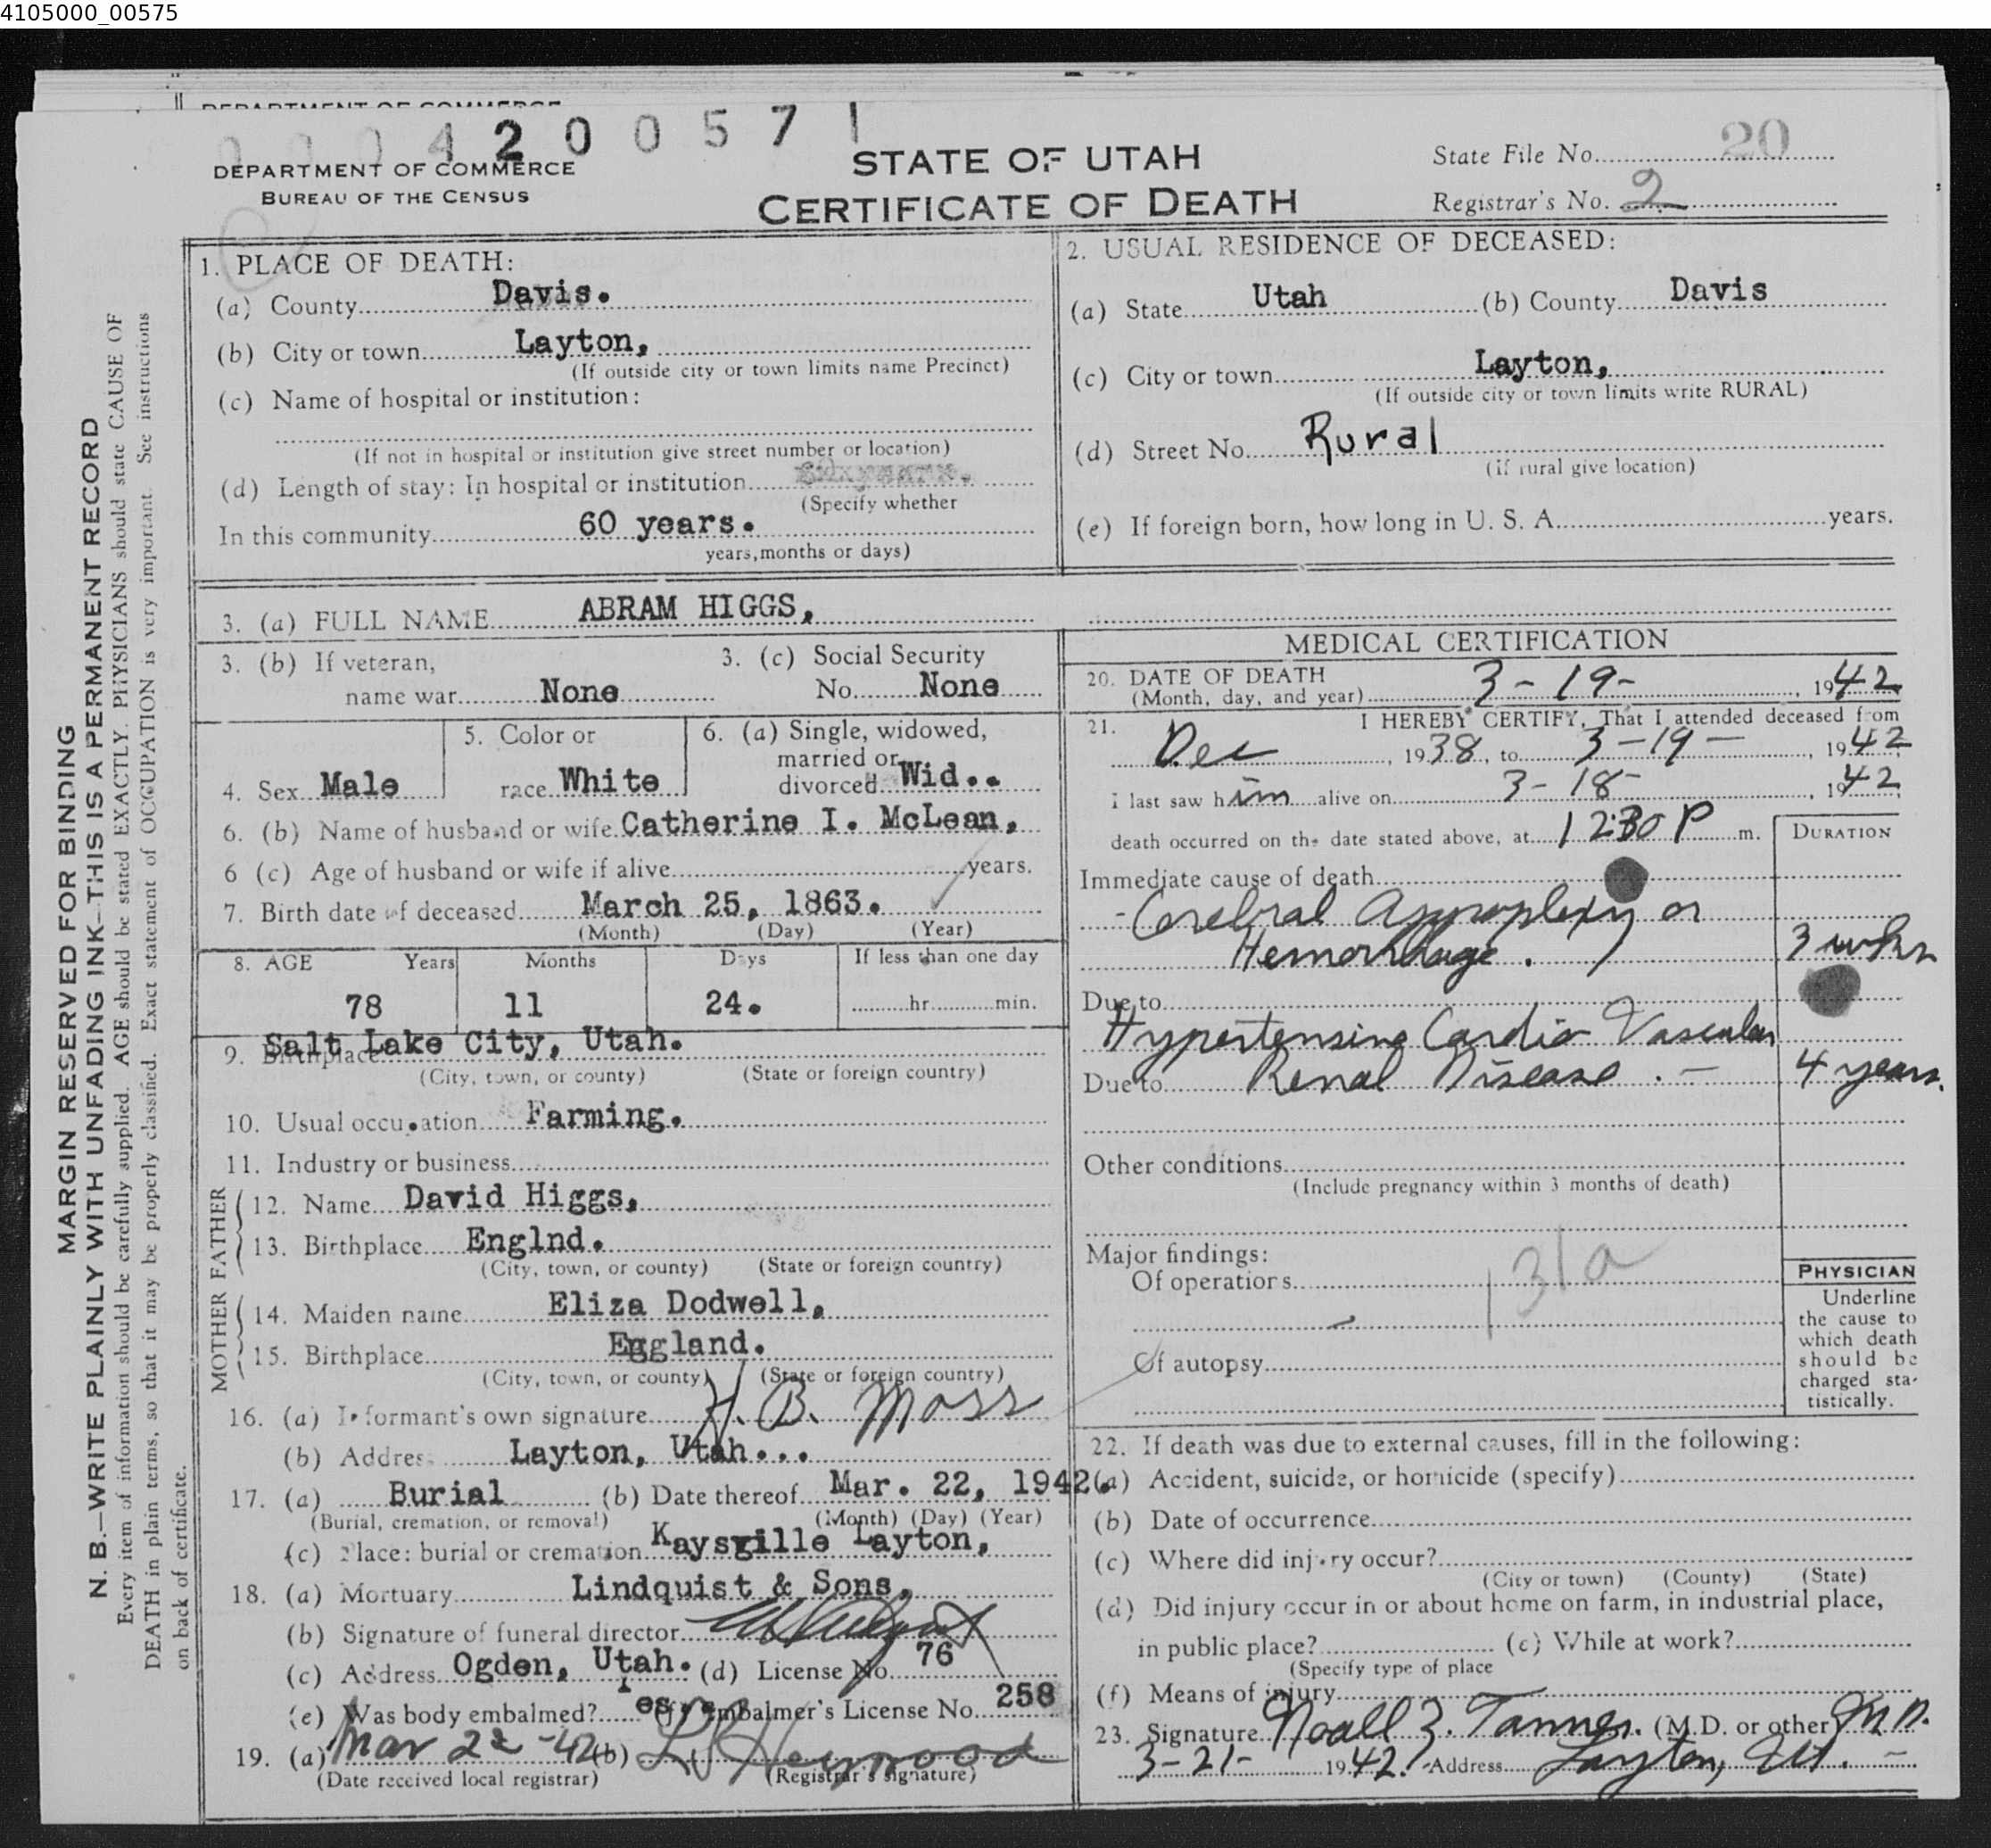 4105000_00575
DEPARTMENT OF COMMERCE
0004200571
DEPARTMENT OF COMMERCE
BUREAU OF THE CENSUS
STATE OF UTAH
CERTIFICATE OF DEATH
State File No. 20
Registrar's No. 2
MARGIN RESERVED FOR BINDING
N. B.—WRITE PLAINLY WITH UNFADING INK—THIS IS A PERMANENT RECORD
Every item of information should be carefully supplied. AGE should be stated EXACTLY. PHYSICIANS should state CAUSE OF
DEATH in plain terms, so that it may be properly classified. Exact statement of OCCUPATION is very important. See instructions
on back of certificate.
1. PLACE OF DEATH:
(a) County Davis.
(b) City or town Layton,
(If outside city or town limits name Precinct)
(c) Name of hospital or institution:
(If not in hospital or institution give street number or location)
(d) Length of stay: In hospital or institution
(Specify whether
In this community 60 years.
years, months or days)
2. USUAL RESIDENCE OF DECEASED:
(a) State Utah (b) County Davis
(c) City or town Layton,
(If outside city or town limits write RURAL)
(d) Street No. Rural
(if rural give location)
(e) If foreign born, how long in U. S. A. years.
3. (a) FULL NAME ABRAM HIGGS,
3. (b) If veteran,
name war None
3. (c) Social Security
No. None
4. Sex Male
5. Color or
race White
6. (a) Single, widowed,
married or
divorced Wid..
6. (b) Name of husband or wife Catherine I. McLean,
6 (c) Age of husband or wife if alive years.
7. Birth date of deceased March 25, 1863.
(Month) (Day) (Year)
8. AGE Years Months Days If less than one day
78 11 24. hr. min.
9. Birthplace Salt Lake City, Utah.
(City, town, or county) (State or foreign country)
10. Usual occupation Farming.
11. Industry or business
FATHER
12. Name David Higgs,
13. Birthplace Englnd.
(City, town, or county) (State or foreign country)
MOTHER
14. Maiden name Eliza Dodwell,
15. Birthplace England.
(City, town, or county) (State or foreign country)
16. (a) Informant's own signature H. B. Moss
(b) Address Layton, Utah...
17. (a) Burial (b) Date thereof Mar. 22, 1942.
(Burial, cremation, or removal) (Month) (Day) (Year)
(c) Place: burial or cremation Kaysville Layton,
18. (a) Mortuary Lindquist & Sons,
(b) Signature of funeral director
(c) Address Ogden, Utah. (d) License No. 76
(e) Was body embalmed? Yes (f) Embalmer's License No. 258
19. (a) Mar 22 -42 (b) Heywood
(Date received local registrar) (Registrar's signature)
MEDICAL CERTIFICATION
20. DATE OF DEATH
(Month, day, and year) 3-19-, 1942
21. I HEREBY CERTIFY, That I attended deceased from
Dec, 1938, to 3-19-, 1942
I last saw him alive on 3-18-, 1942
death occurred on the date stated above, at 12:30 P m.
DURATION
Immediate cause of death
-Cerebral Appoplexy or
Hemorrhage. 3 wks
Due to
Hypertensive Cardio Vascular
Due to Renal Disease. - 4 years.
Other conditions
(Include pregnancy within 3 months of death)
Major findings:
Of operations
131a
Of autopsy
PHYSICIAN
Underline
the cause to
which death
should be
charged sta-
tistically.
22. If death was due to external causes, fill in the following:
(a) Accident, suicide, or homicide (specify)
(b) Date of occurrence
(c) Where did injury occur?
(City or town) (County) (State)
(d) Did injury occur in or about home on farm, in industrial place,
in public place? (e) While at work?
(Specify type of place
(f) Means of injury
23. Signature Noall Z. Tanner. (M.D. or other) M.D.
3-21- 1942. Address Layton, Ut. -